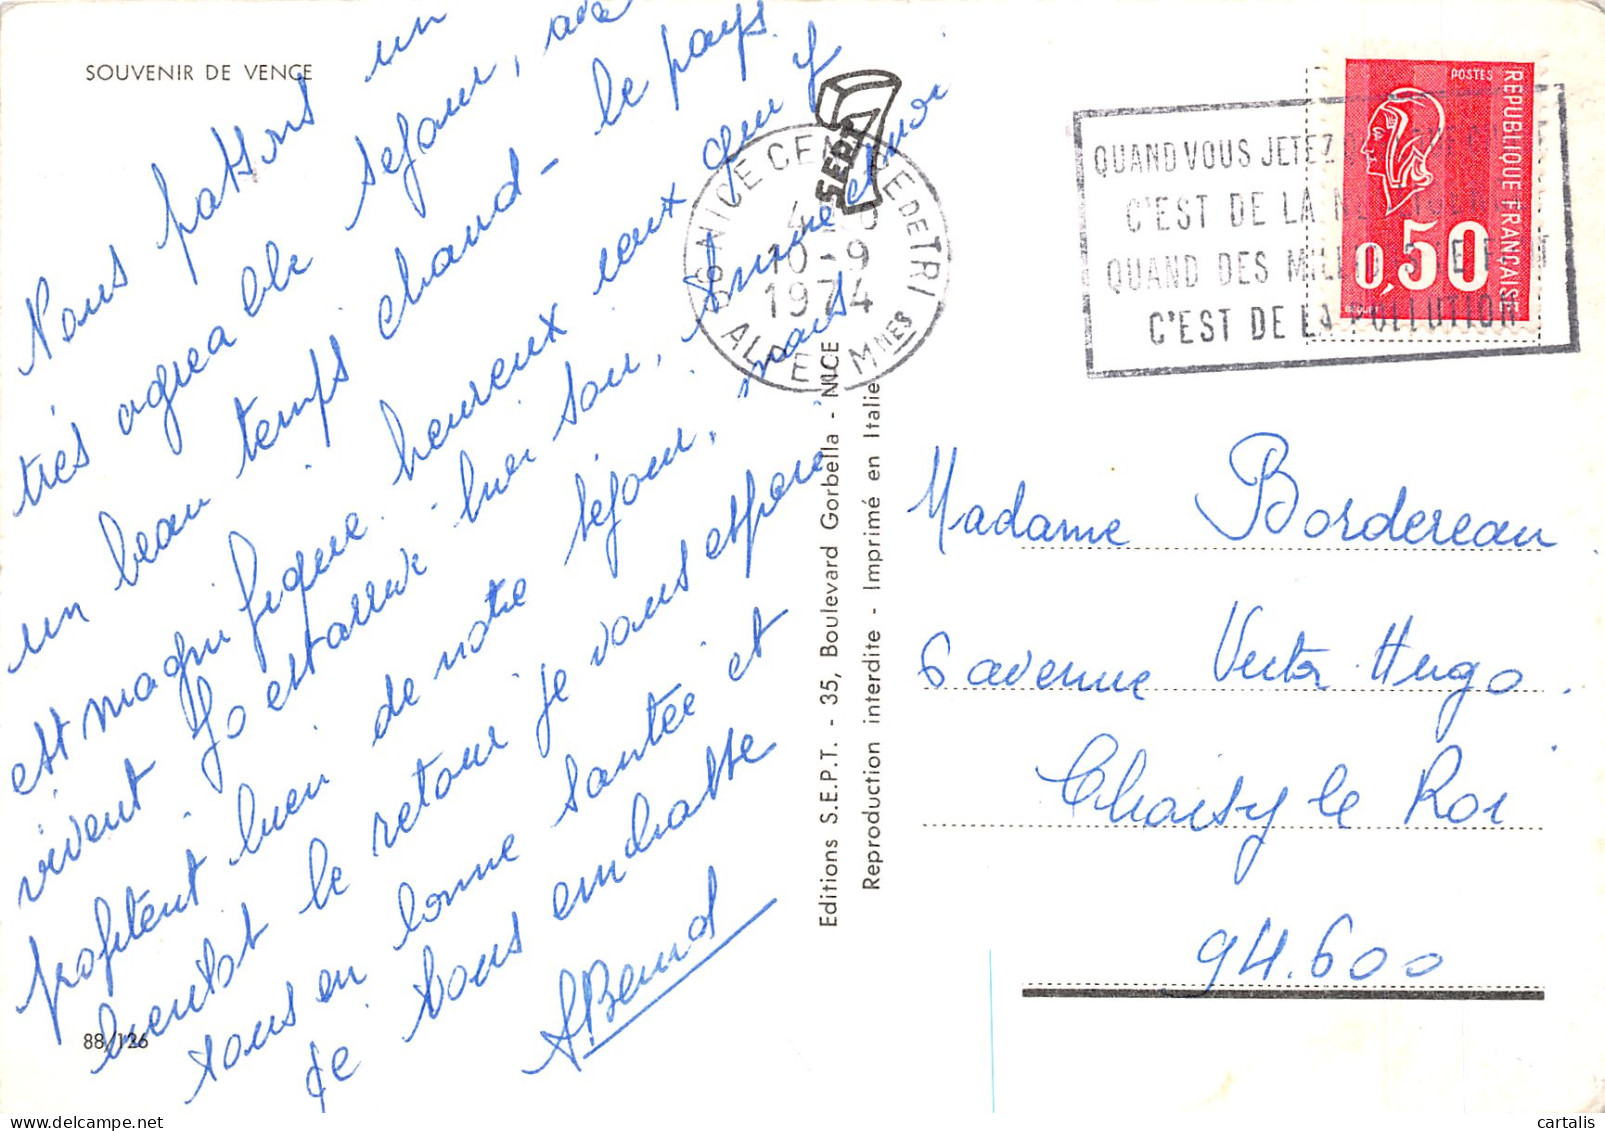 SOUVENIR DE VENCE
Nous passons un
très agreable sejour, avec
un beau temps chaud - le pays
est magnifique. heureux ceux qui y
vivent Jo est arrivé hier soir, Annie et moi
profitent bien de notre séjour, mais
bientot le retour je vous espère
tous en bonne santée et
Je vous embrasse
ABenud
88/126
SEPT
06 NICE CENTRE DE TRI
10-9
1974
ALPES Mmes
QUAND VOUS JETEZ
C'EST DE LA
QUAND DES
C'EST DE LA POLLUTION
POSTES
REPUBLIQUE FRANÇAISE
0,50
BEQUET
Editions S.E.P.T. - 35, Boulevard Gorbella - NICE
Reproduction interdite - Imprimé en Italie
Madame Bordereau
6 avenue Victor Hugo.
Choisy le Roi
94.600
cartalis